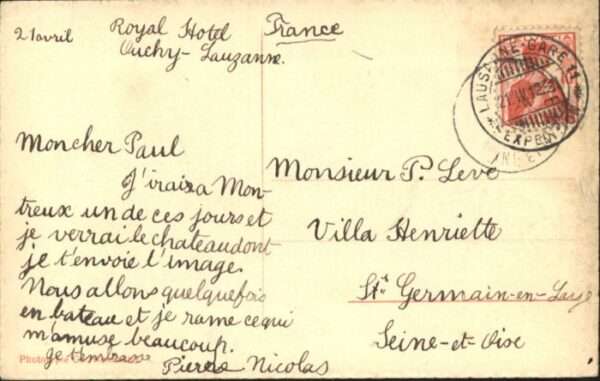 21 avril
Royal Hotel
Ouchy-Lauzanne.
France
LAUSANNE-GARE 11
21.IV.12
EXPEDITION
Moncher Paul
J'irai a Mon-
treux un de ces jours et
je verrai le chateau dont
je t'envoie l'image.
Nous allons quelquefois
en bateau et je rame ce qui
m'amuse beaucoup.
Je t'embrasse
Pierre Nicolas
Monsieur P. Leve
Villa Henriette
St. Germain-en-Laye
Seine-et-Oise